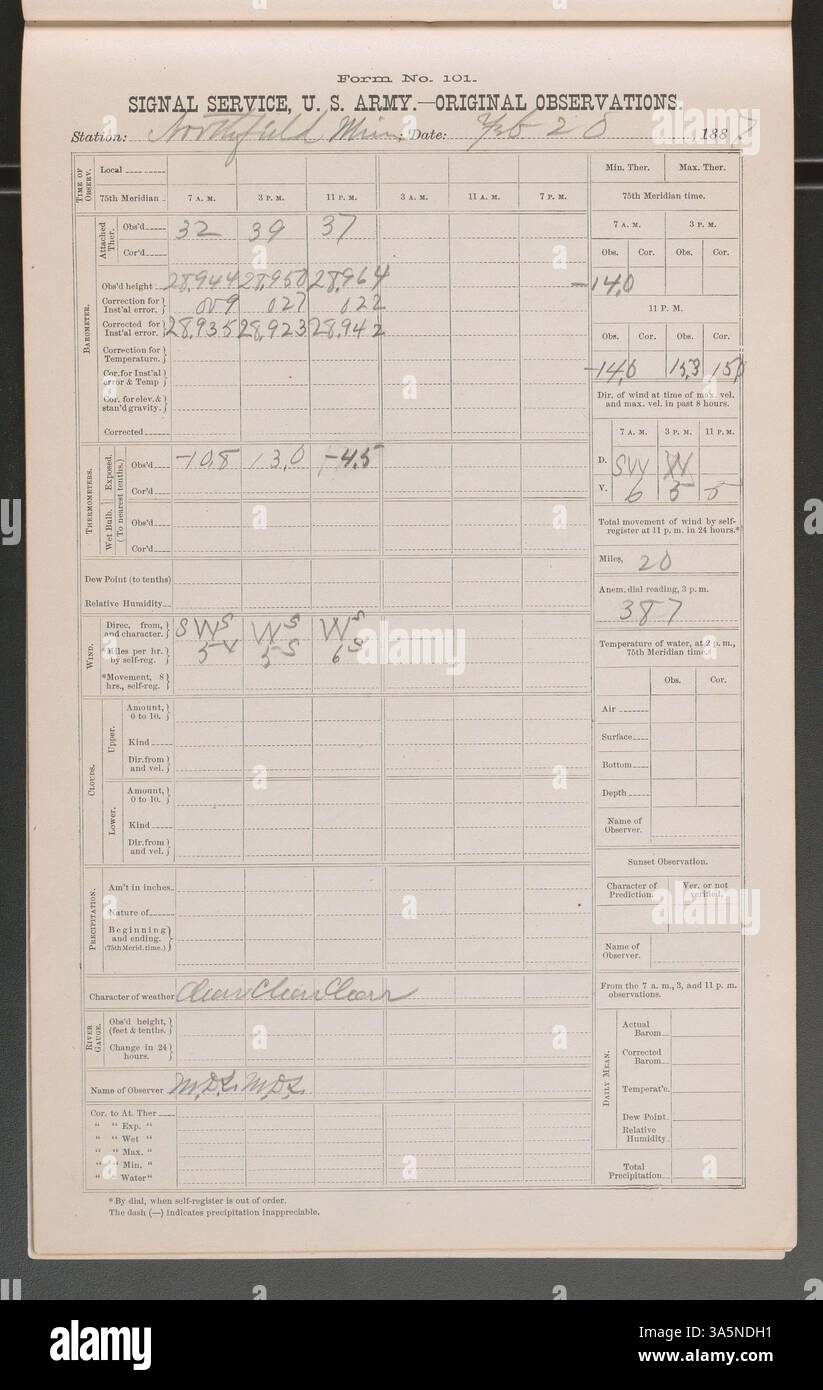 Form No. 101.
SIGNAL SERVICE, U. S. ARMY.—ORIGINAL OBSERVATIONS.
Station: Northfield Minn; Date: Feb 28 1887
TIME OF OBSERV.
Local
75th Meridian 7 A. M. 3 P. M. 11 P. M. 3 A. M. 11 A. M. 7 P. M.
BAROMETER.
Attached Ther.
Obs'd 32 39 37
Cor'd
Obs'd height 28,944 28,950 28,964
Correction for Inst'al error. 009 027 022
Corrected for Inst'al error. 28,935 28,923 28,942
Correction for Temperature.
Cor. for Inst'al error & Temp
Cor. for elev. & stan'd gravity.
Corrected
THERMOMETERS.
Exposed.
(To nearest tenths.)
Obs'd -10,8 13,0 -4.5
Cor'd
Wet Bulb.
Obs'd
Cor'd
Dew Point (to tenths)
Relative Humidity
WIND.
Direc. from, and character. SW S W S W S
*Miles per hr. by self-reg. 5 5 S 6 S
*Movement, 8 hrs., self-reg.
CLOUDS.
Upper.
Amount, 0 to 10.
Kind
Dir. from and vel.
Lower.
Amount, 0 to 10.
Kind
Dir. from and vel.
PRECIPITATION.
Am't in inches
Nature of
Beginning and ending. (75th Merid. time.)
Character of weather Clear Clear Clear
RIVER GAUGE.
Obs'd height, (feet & tenths.)
Change in 24 hours.
Name of Observer
Cor. to At. Ther
" " Exp. "
" " Wet "
" " Max. "
" " Min. "
" " Water "
* By dial, when self-register is out of order.
The dash (—) indicates precipitation inappreciable.
Min. Ther. Max. Ther.
75th Meridian time.
7 A. M. 3 P. M.
Obs. Cor. Obs. Cor.
-14,0
11 P. M.
Obs. Cor. Obs. Cor.
-14,0 15,3 15,
Dir. of wind at time of max. vel. and max. vel. in past 8 hours.
7 A. M. 3 P. M. 11 P. M.
D. SW W
V. 6 5 8
Total movement of wind by self-register at 11 p. m. in 24 hours.*
Miles, 20
Anem. dial reading, 3 p. m.
387
Temperature of water, at 2 p. m., 75th Meridian time.
Obs. Cor.
Air
Surface
Bottom
Depth
Name of Observer.
Sunset Observation.
Character of Prediction. Ver. or not verified.
Name of Observer.
From the 7 a. m., 3, and 11 p. m. observations.
DAILY MEAN.
Actual Barom.
Corrected Barom.
Temperat'e.
Dew Point.
Relative Humidity.
Total Precipitation.
alamy
Image ID: 3A5NDH1
www.alamy.com